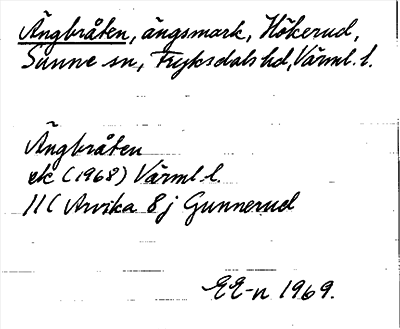 Ängbråten, ängsmark, Hökerud,
Sunne sn, Fryksdals hd, Värml. l.
Ängbråten
ek (1968) Värml. l.
11C Arvika 8j Gunnerud
EE-n 1969.